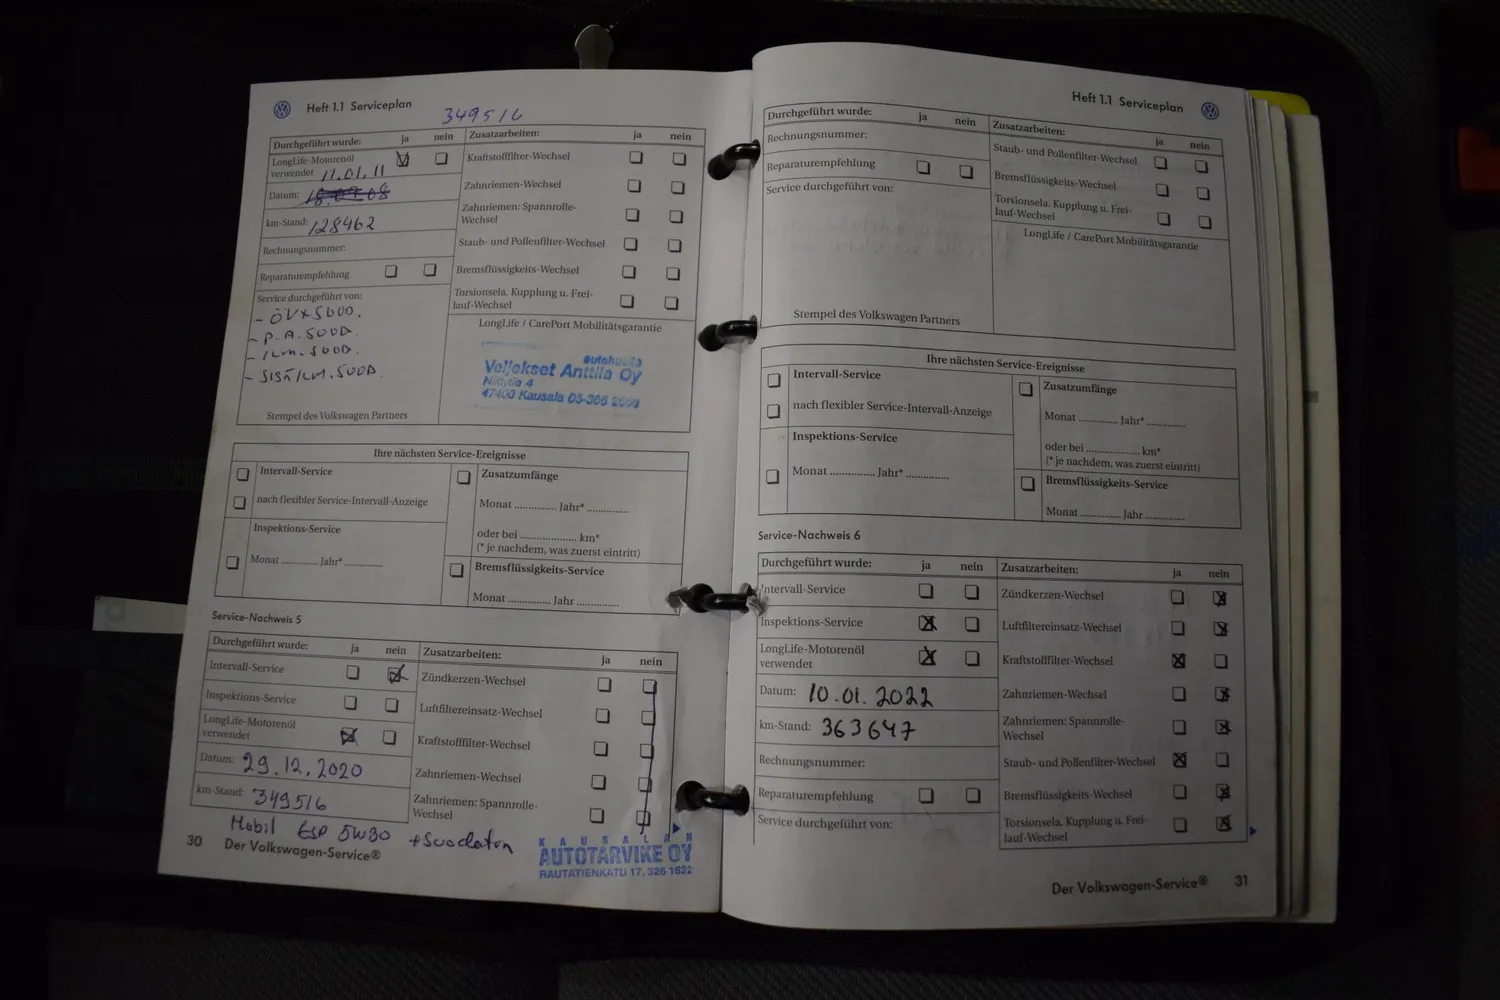 Heft 1.1 Serviceplan
349516
Durchgeführt wurde: ja nein
LongLife-Motorenöl
verwendet 11.01.11
Datum:
km-Stand: 128462
Rechnungsnummer:
Reparaturempfehlung
Service durchgeführt von:
- P.A. SUOD.
- ILM. SUOD.
- SISÄILM. SUOD.
Stempel des Volkswagen Partners
Zusatzarbeiten: ja nein
Kraftstofffilter-Wechsel
Zahnriemen-Wechsel
Zahnriemen: Spannrolle-
Wechsel
Staub- und Pollenfilter-Wechsel
Bremsflüssigkeits-Wechsel
Torsionsela. Kupplung u. Frei-
lauf-Wechsel
LongLife / CarePort Mobilitätsgarantie
autohuolto
Veljekset Anttila Oy
47400 Kausala
Ihre nächsten Service-Ereignisse
Intervall-Service
nach flexibler Service-Intervall-Anzeige
Inspektions-Service
Monat .............. Jahr* ..............
Zusatzumfänge
Monat .............. Jahr* ..............
oder bei .................... km*
(* je nachdem, was zuerst eintritt)
Bremsflüssigkeits-Service
Monat .............. Jahr ..............
Service-Nachweis 5
Durchgeführt wurde: ja nein
Intervall-Service
Inspektions-Service
LongLife-Motorenöl
verwendet
Datum: 29.12.2020
km-Stand: 349516
Mobil ESP 5W30 + Suodatin
Zusatzarbeiten: ja nein
Zündkerzen-Wechsel
Luftfiltereinsatz-Wechsel
Kraftstofffilter-Wechsel
Zahnriemen-Wechsel
Zahnriemen: Spannrolle-
Wechsel
KAUSALAN
AUTOTARVIKE OY
RAUTATIENKATU 17, 326 1522
30 Der Volkswagen-Service®
Heft 1.1 Serviceplan
Durchgeführt wurde: ja nein
Rechnungsnummer:
Reparaturempfehlung
Service durchgeführt von:
Stempel des Volkswagen Partners
Zusatzarbeiten: ja nein
Staub- und Pollenfilter-Wechsel
Bremsflüssigkeits-Wechsel
Torsionsela. Kupplung u. Frei-
lauf-Wechsel
LongLife / CarePort Mobilitätsgarantie
Ihre nächsten Service-Ereignisse
Intervall-Service
nach flexibler Service-Intervall-Anzeige
Inspektions-Service
Monat .............. Jahr* ..............
Zusatzumfänge
Monat .............. Jahr* ..............
oder bei .................... km*
(* je nachdem, was zuerst eintritt)
Bremsflüssigkeits-Service
Monat .............. Jahr ..............
Service-Nachweis 6
Durchgeführt wurde: ja nein
Intervall-Service
Inspektions-Service
LongLife-Motorenöl
verwendet
Datum: 10.01.2022
km-Stand: 363647
Rechnungsnummer:
Reparaturempfehlung
Service durchgeführt von:
Zusatzarbeiten: ja nein
Zündkerzen-Wechsel
Luftfiltereinsatz-Wechsel
Kraftstofffilter-Wechsel
Zahnriemen-Wechsel
Zahnriemen: Spannrolle-
Wechsel
Staub- und Pollenfilter-Wechsel
Bremsflüssigkeits-Wechsel
Torsionsela. Kupplung u. Frei-
lauf-Wechsel
Der Volkswagen-Service® 31